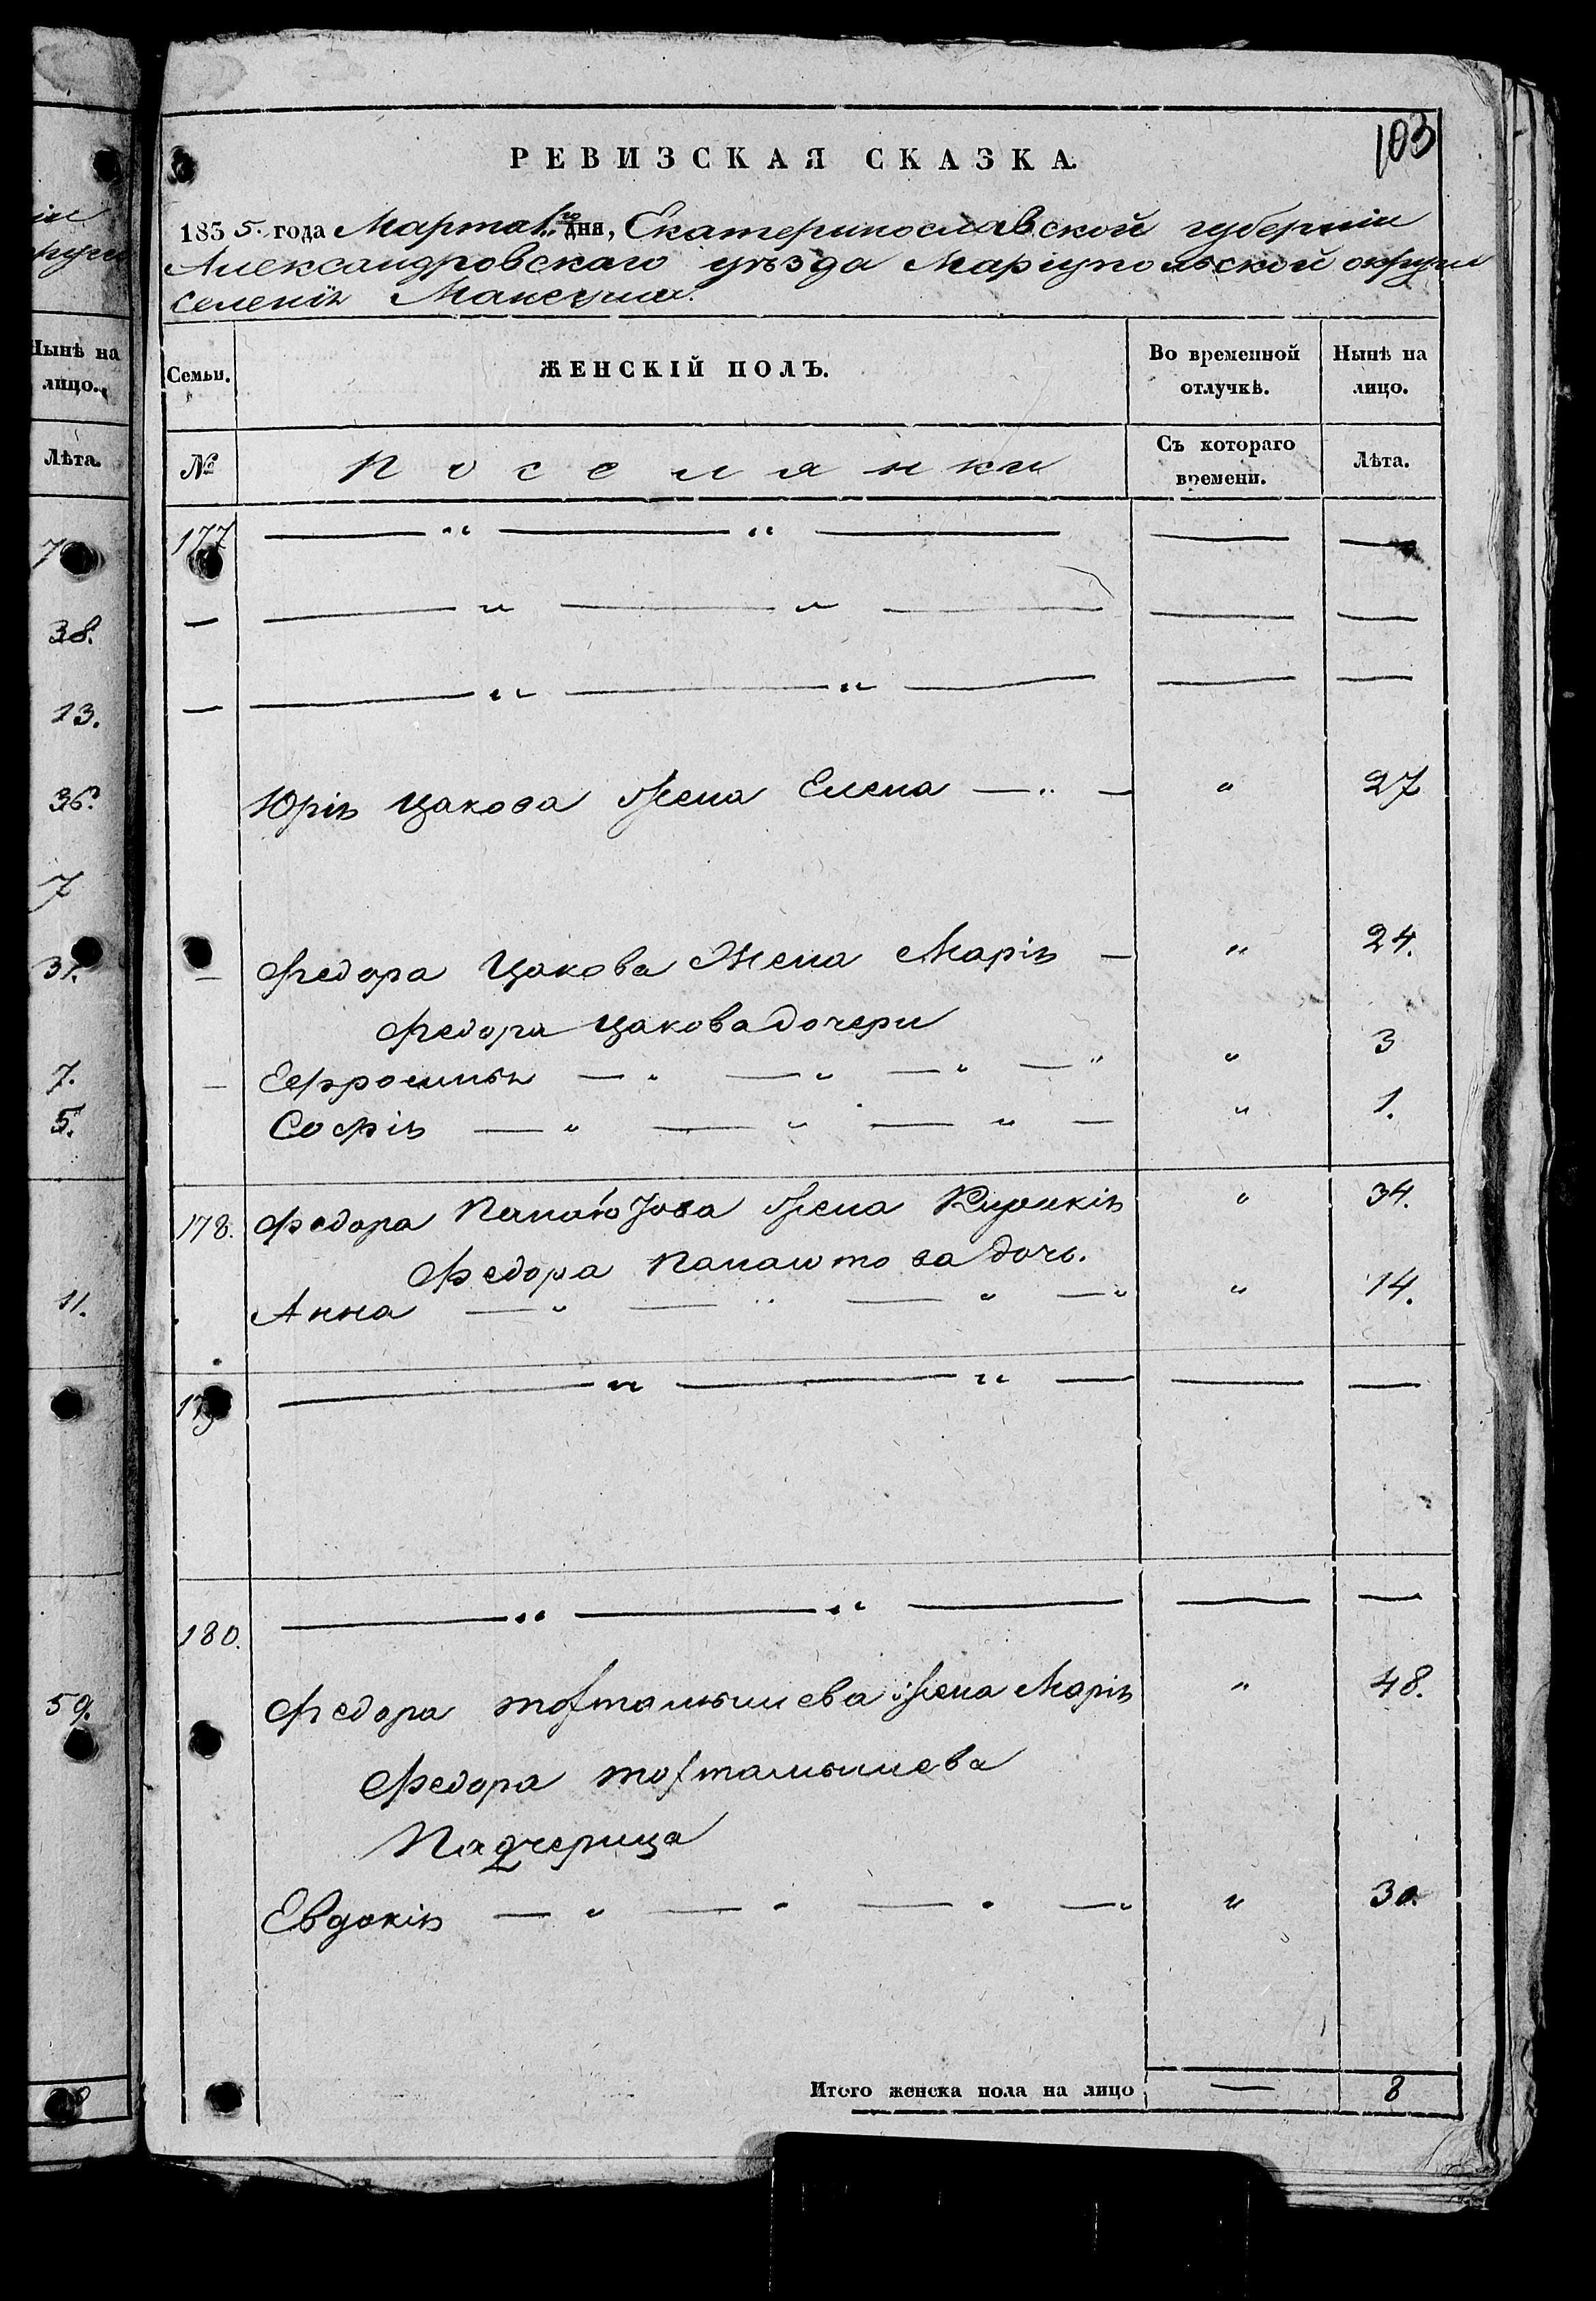 ін
округи
Нынѣ на
лицо.
Лѣта.
7
38.
13.
36.
7
31.
7.
5.
11.
59.
103
РЕВИЗСКАЯ СКАЗКА.
1835. года Марта 1го дня, Екатеринославской губерніи
Александровскаго уѣзда Маріупольской округи
селенія Мангуша.
Семьи. ЖЕНСКІЙ ПОЛЪ. Во временной отлучкѣ. Нынѣ на лицо.
№ Поселянки Съ котораго времени. Лѣта.
177 — „ — „ — — —
— — „ — „ — — —
— — „ — „ — — —
Юрія Цахова жена Елена — „ — „ 27
— Федора Цахова жена Марія — „ 24.
Федора Цахова дочери
— Ефросинія — „ — „ — „ — „ „ 3
Софія — „ — „ — „ — „ 1.
178. Федора жена Кирикія „ 34.
Федора дочь.
Анна — „ — „ — „ — „ „ 14.
179 — „ — „ — — —
180. — „ — „ — — —
Федора Тохтамышева жена Марія „ 48.
Федора Тохтамышева
Падчерица
Евдокія — „ — „ — „ — „ „ 30.
Итого женска пола на лицо — 8